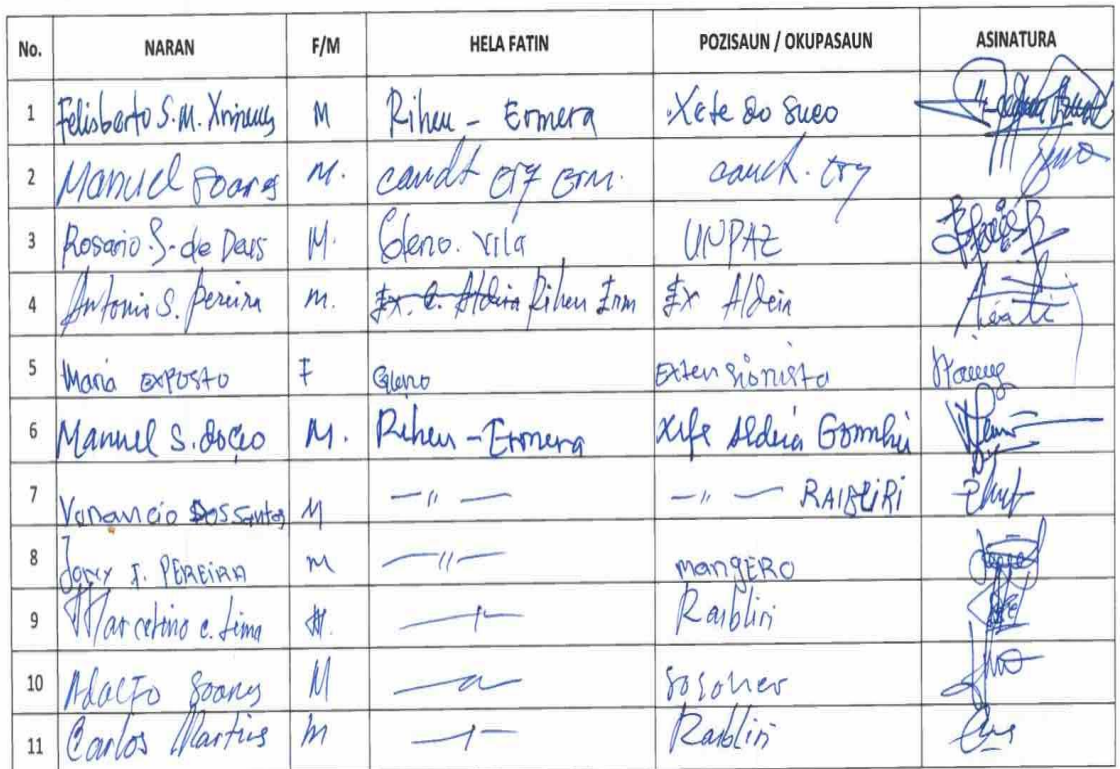 No. NARAN F/M HELA FATIN POZISAUN / OKUPASAUN ASINATURA
1 Felisberto S.M. M Riheu - Ermera Xefe do Suco
2 Manuel Soares M. caudt Erm.
3 Rosario S. de Deus M. Gleno. Vila UNPAZ
4 Antonio S. Pereira m. Ex. C. Aldeia Riheu Erm Ex Aldeia
5 Maria EXPOSTO F Gleno Extensionista
6 Manuel S. M. Riheu - Ermera Xefe Aldeia
7 Vanancio Dos Santos M — 〃 — — 〃 — RAIBLIRI
8 PEREIRA m — 〃 — mangERO
9 Marcelino c. Lima M. Raibliri
10 Adolfo Soares M
11 Carlos Martins m Raibliri